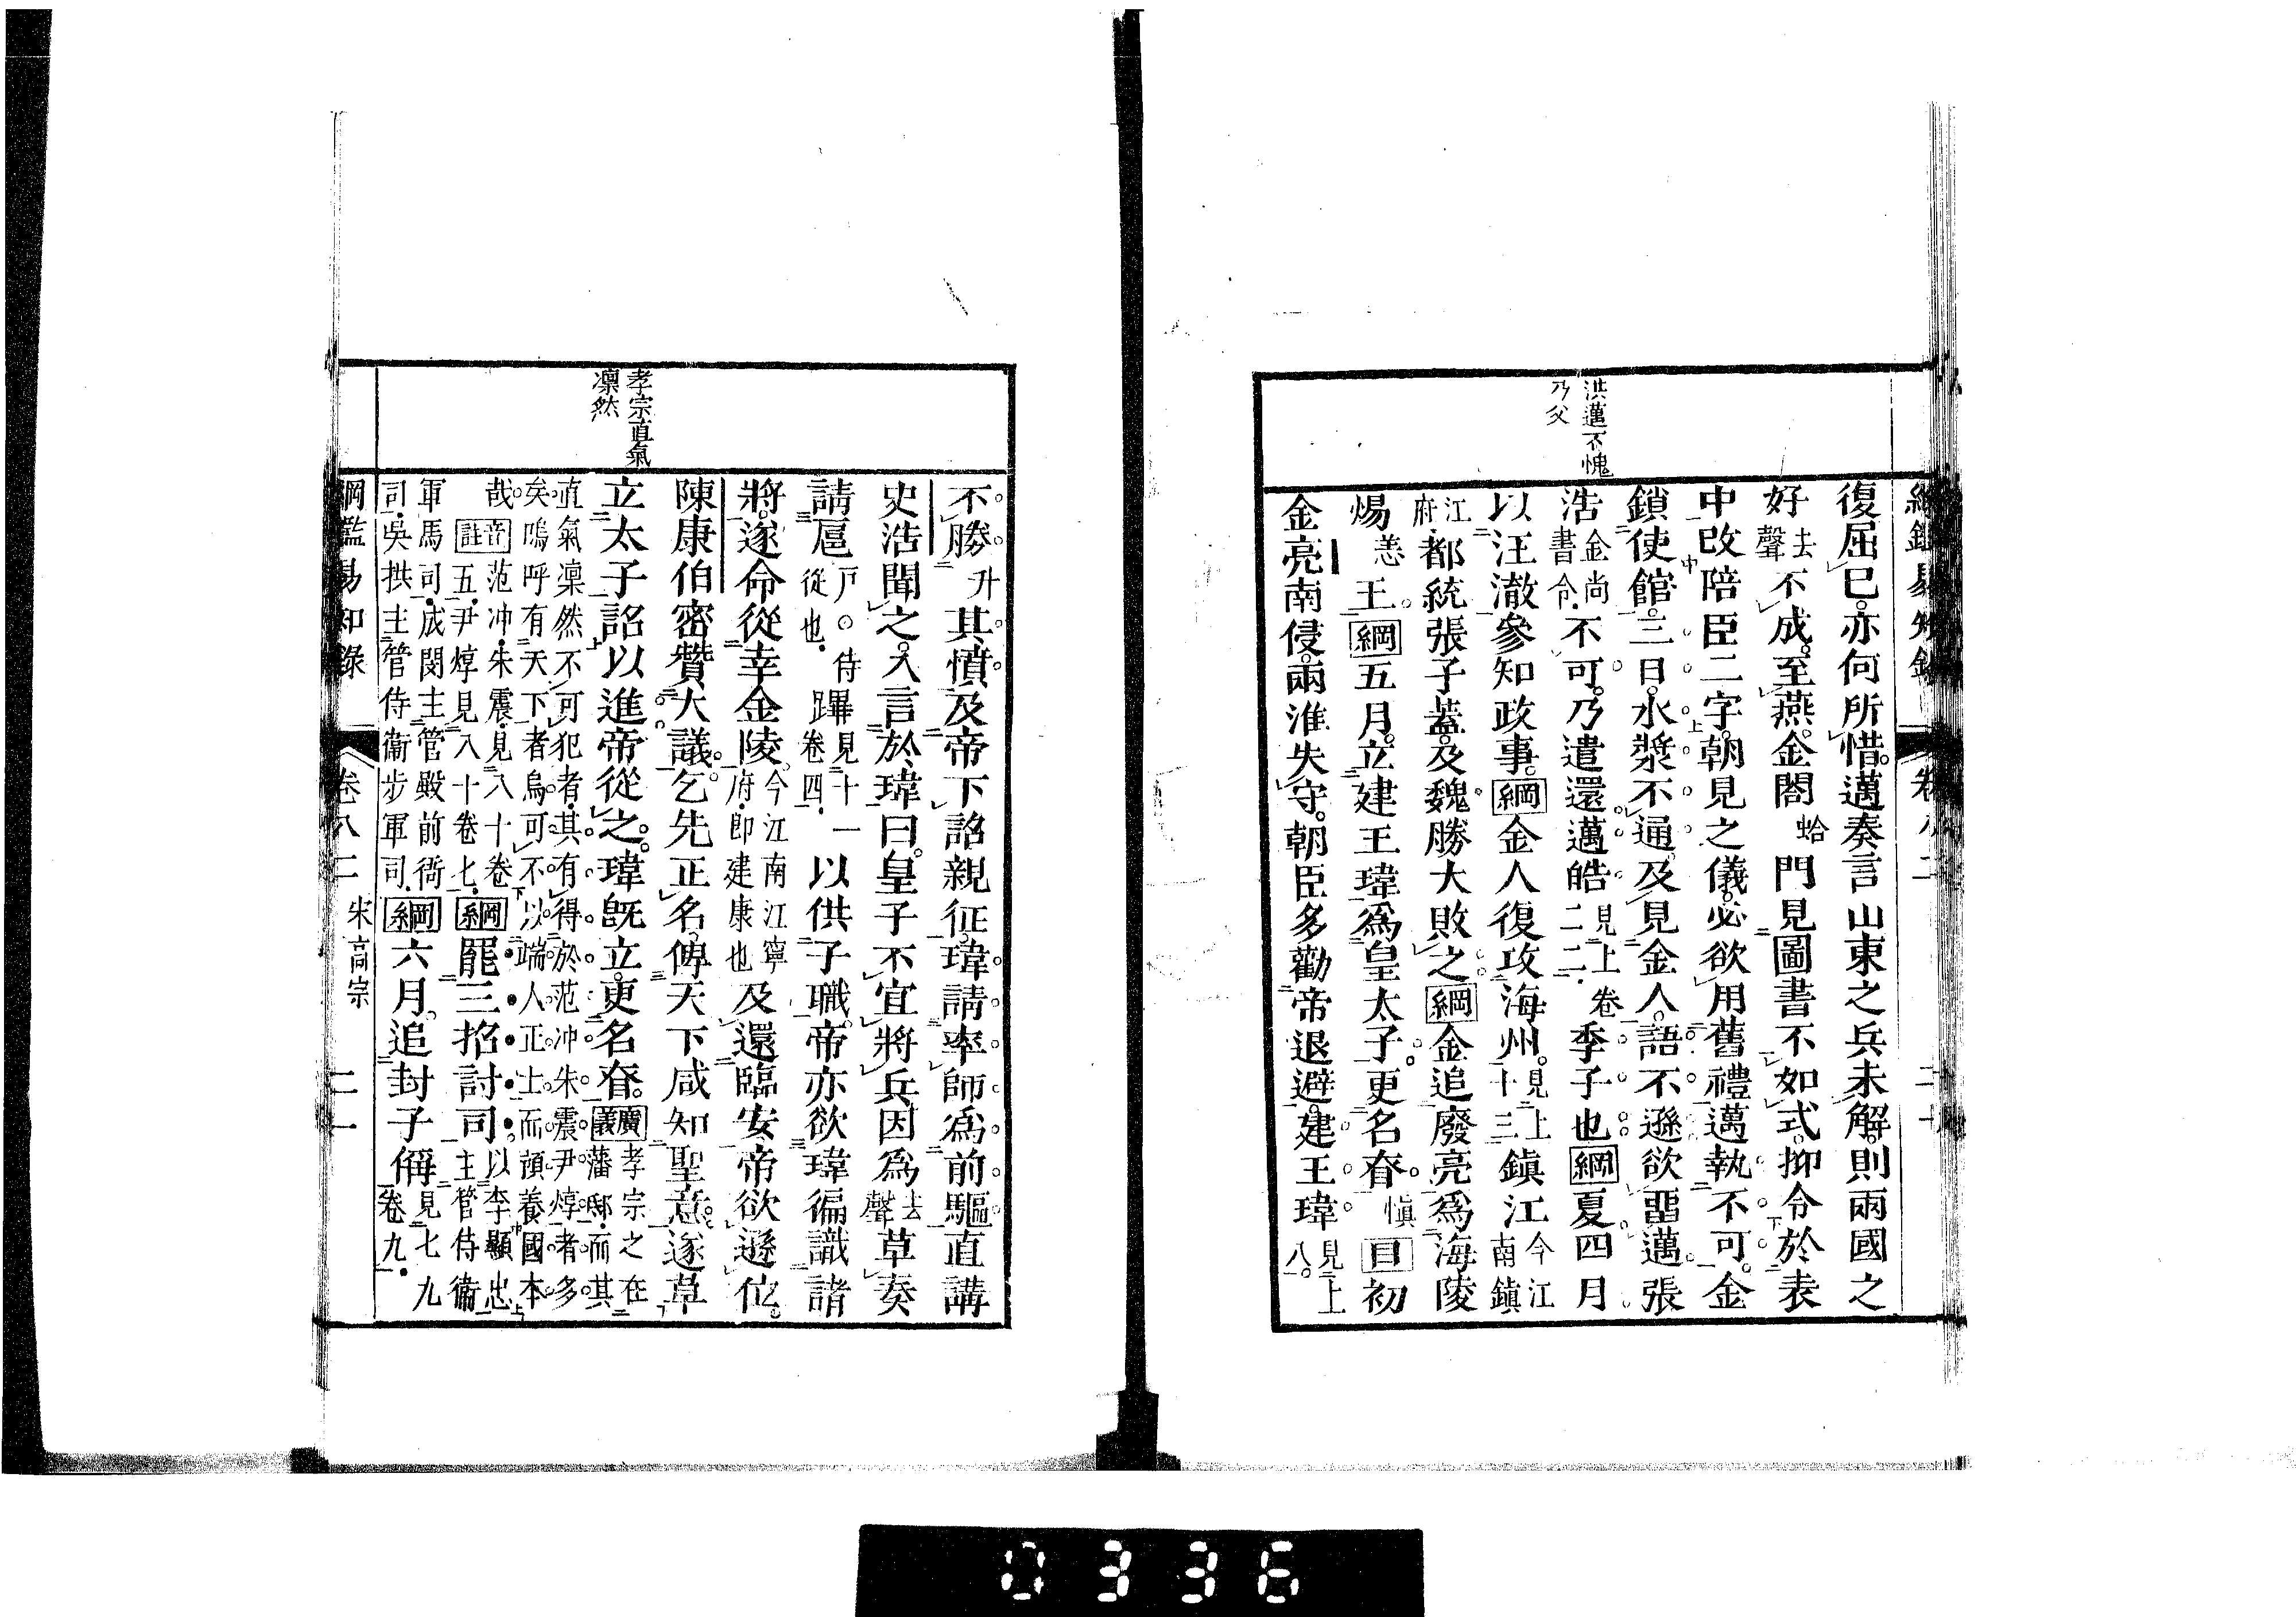 綱鑑易知錄 卷八二 二十
洪邁不愧
乃父
復屈已亦何所惜邁奏言山東之兵未解則兩國之
好去聲不成至燕金閤蛤門見國書不如式抑令於表
中改陪臣二字朝見之儀必欲用舊禮邁執不可金
鎖使館三日水漿不通及見金人語不遜欲畱邁張
浩金尚書令不可乃遣還邁皓見上卷二二季子也綱夏四月
以汪澈參知政事綱金人復攻海州見上十三鎮江今江南鎮
江府都統張子蓋及魏勝大敗之綱金追廢亮爲海陵
煬恙王綱五月立建王瑋爲皇太子更名昚愼目初
金亮南侵兩淮失守朝臣多勸帝退避建王瑋見上八
孝宗直氣
凜然
不勝升其憤及帝下詔親征瑋請率師爲前驅直講
史浩聞之入言於瑋曰皇子不宜將兵因爲去聲草奏
請扈戶○侍從也蹕見十一卷四以供子職帝亦欲瑋徧識諸
將遂命從幸金陵今江南江寧府卽建康也及還臨安帝欲遜位
陳康伯密贊大議乞先正名俾天下咸知聖意遂草
立太子詔以進帝從之瑋旣立更名昚廣義孝宗之在藩邸而其
直氣凜然不可犯者其有得於范冲朱震尹焞者多
矣嗚呼有天下者烏可不以端人正士而預養國本
哉音註范冲朱震見八十卷五尹焞見八十卷七綱罷三招討司以李顯忠主管侍衞
軍馬司成閔主管殿前司吳拱主管侍衞步軍司綱六月追封子偁見七九卷九
綱鑑易知錄 卷八二 宋高宗 二一
0336